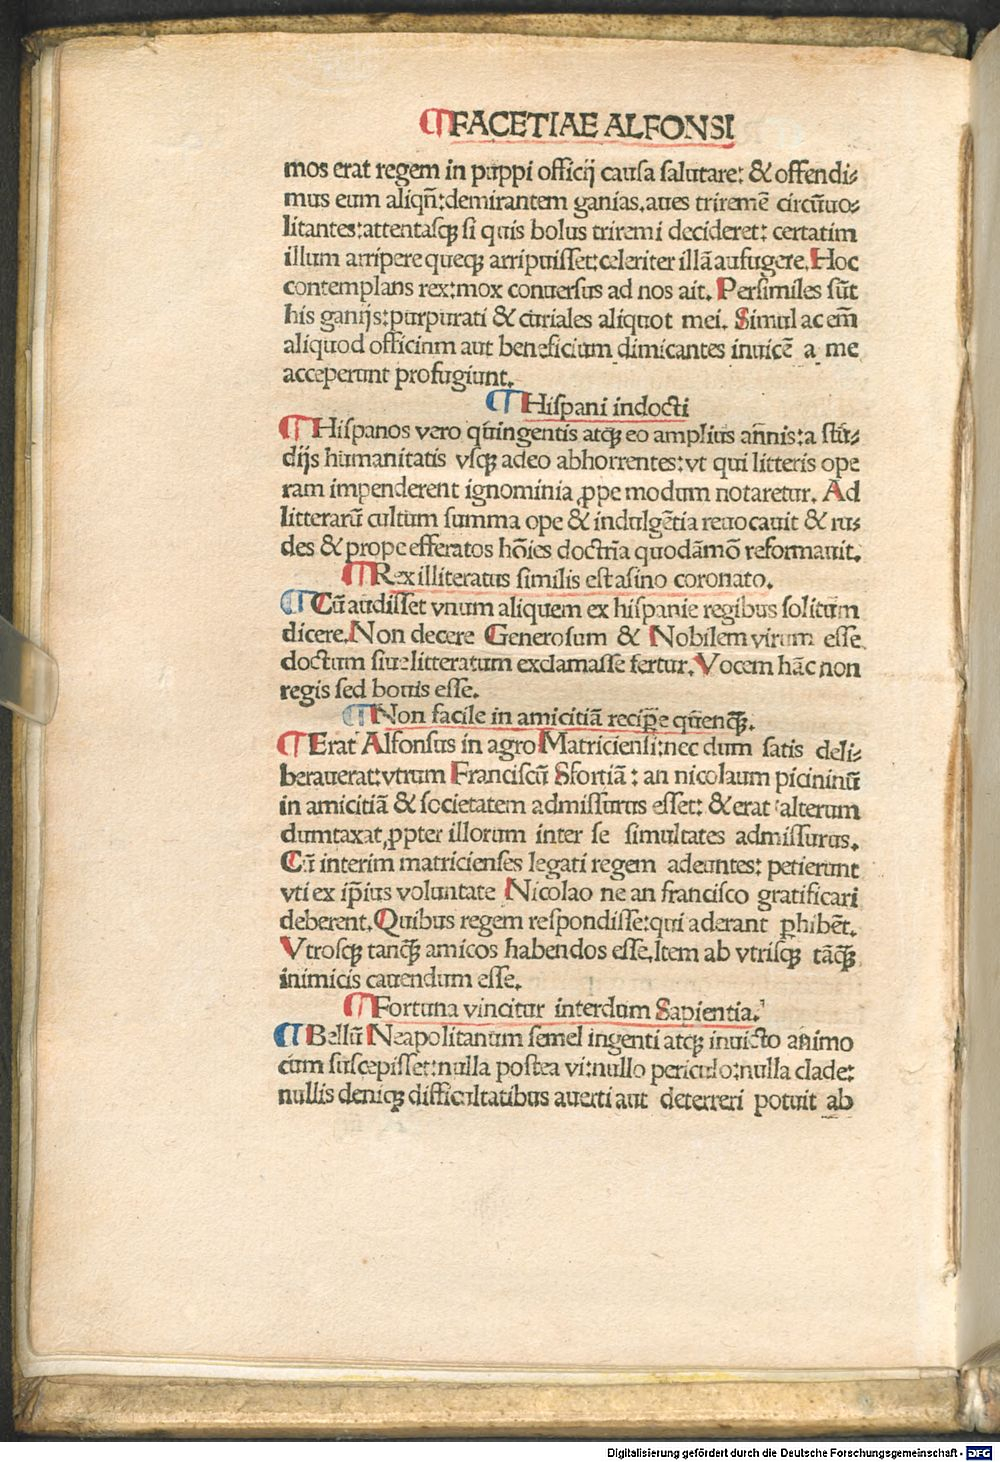 ¶FACETIAE ALFONSI
mos erat regem in puppi officij causa salutare: & offendi⸗
mus eum aliqñ:demirantem ganias.aues triremē circūuo⸗
litantes:attentasqꝫ si quis bolus triremi decideret: certatim
illum arripere queqꝫ arripuisset:celeriter illā aufugere.Hoc
contemplans rex:mox conuersus ad nos ait. Persimiles sūt
his ganijs:purpurati & curiales aliquot mei. Simul ac em̄
aliquod officium aut beneficium dimicantes inuicē a me
acceperunt profugiunt.
¶Hispani indocti
¶Hispanos vero quingentis atqꝫ eo amplius annis:a stu⸗
dijs humanitatis vsqꝫ adeo abhorrentes:vt qui litteris ope
ram impenderent ignominia ꝓpe modum notaretur. Ad
litterarū cultum summa ope & indulgētia reuocauit & ru⸗
des & prope efferatos hōies doctrīa quodāmō reformauit.
¶Rex illiteratus similis est asino coronato.
¶Cū audisset vnum aliquem ex hispanie regibus solitum
dicere.Non decere Generosum & Nobilem virum esse
doctum siue litteratum exclamasse fertur.Vocem hāc non
regis sed bouis esse.
¶Non facile in amicitiā recipe quenqꝫ.
¶Erat Alfonsus in agro Matriciensi:nec dum satis deli⸗
berauerat:vtrum Franciscū Sfortiā : an nicolaum picininū
in amicitiā & societatem admissurus esset: & erat alterum
dumtaxat ꝓpter illorum inter se simultates admissurus.
Cū interim matricienses legati regem adeuntes: petierunt
vti ex ip̄ius voluntate Nicolao ne an francisco gratificari
deberent.Quibus regem respondisse:qui aderant ꝑhibēt.
Vtrosqꝫ tanqꝫ amicos habendos esse.Item ab vtrisqꝫ tāqꝫ
inimicis cauendum esse.
¶Fortuna vincitur interdum Sapientia.
¶Bellū Neapolitanum semel ingenti atqꝫ inuicto animo
cum suscepisset:nulla postea vi:nullo periculo:nulla clade:
nullis deniqꝫ difficultatibus auerti aut deterreri potuit ab
Digitalisierung gefördert durch die Deutsche Forschungsgemeinschaft - DFG